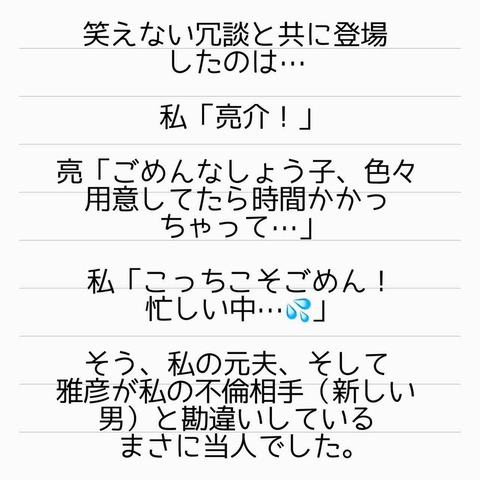 笑えない冗談と共に登場
したのは…
私「亮介！」
亮「ごめんなしょう子、色々
用意してたら時間かかっ
ちゃって…」
私「こっちこそごめん！
忙しい中…💦」
そう、私の元夫、そして
雅彦が私の不倫相手（新しい
男）と勘違いしている
まさに当人でした。